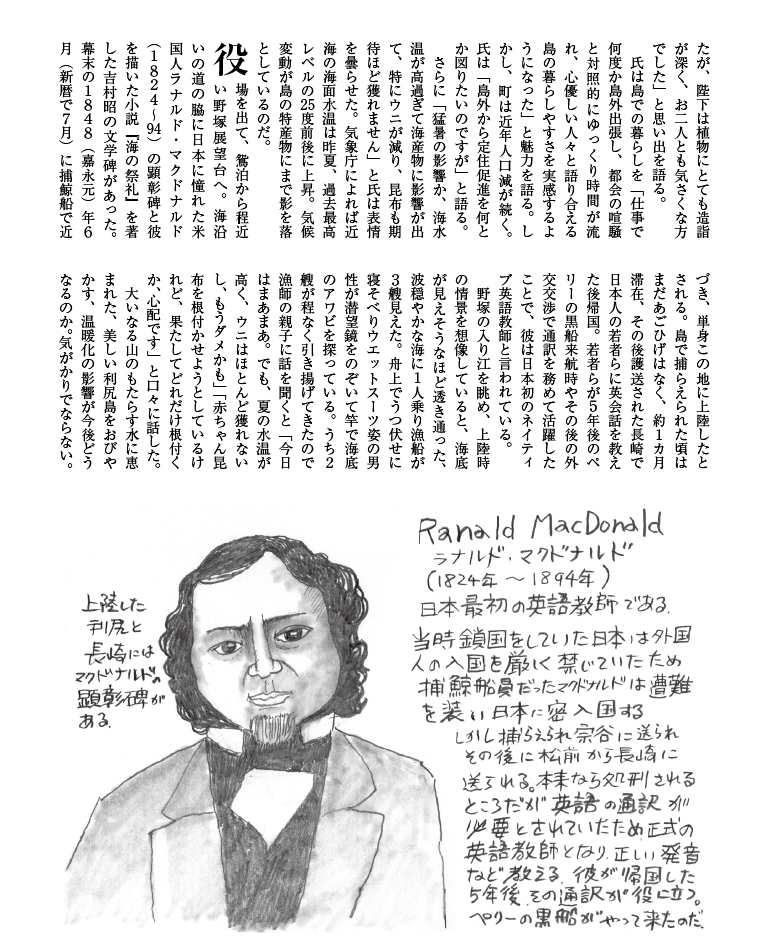 たが、陛下は植物にとても造詣
が深く、お二人とも気さくな方
でした」と思い出を語る。
氏は島での暮らしを「仕事で
何度か島外出張し、都会の喧騒
と対照的にゆっくり時間が流
れ、心優しい人々と語り合える
島の暮らしやすさを実感するよ
うになった」と魅力を語る。し
かし、町は近年人口減が続く。
氏は「島外から定住促進を何と
か図りたいのですが」と語る。
さらに「猛暑の影響か、海水
温が高過ぎて海産物に影響が出
て、特にウニが減り、昆布も期
待ほど獲れません」と氏は表情
を曇らせた。気象庁によれば近
海の海面水温は昨夏、過去最高
レベルの25度前後に上昇。気候
変動が島の特産物にまで影を落
としているのだ。
役場を出て、鴛泊から程近
い野塚展望台へ。海沿
いの道の脇に日本に憧れた米
国人ラナルド・マクドナルド
(1824〜94)の顕彰碑と彼
を描いた小説『海の祭礼』を著
した吉村昭の文学碑があった。
幕末の1848(嘉永元)年6
月(新暦で7月)に捕鯨船で近
づき、単身この地に上陸したと
される。島で捕らえられた頃は
まだあごひげはなく、約1カ月
滞在、その後護送された長崎で
日本人の若者らに英会話を教え
た後帰国。若者らが5年後のペ
リーの黒船来航時やその後の外
交交渉で通訳を務めて活躍した
ことで、彼は日本初のネイティ
ブ英語教師と言われている。
野塚の入り江を眺め、上陸時
の情景を想像していると、海底
が見えそうなほど透き通った、
波穏やかな海に1人乗り漁船が
3艘見えた。舟上でうつ伏せに
寝そべりウエットスーツ姿の男
性が潜望鏡をのぞいて竿で海底
のアワビを探っている。うち2
艘が程なく引き揚げてきたので
漁師の親子に話を聞くと「今日
はまあまあ。でも、夏の水温が
高く、ウニはほとんど獲れない
し、もうダメかも」「赤ちゃん昆
布を根付かせようとしているけ
れど、果たしてどれだけ根付く
か、心配です」と口々に話した。
大いなる山のもたらす水に恵
まれた、美しい利尻島をおびや
かす、温暖化の影響が今後どう
なるのか。気がかりでならない。
Ranald MacDonald
ラナルド・マクドナルド
(1824年〜1894年)
日本最初の英語教師である.
当時鎖国をしていた日本は外国
人の入国を厳しく禁じていたため
捕鯨船員だったマクドナルドは遭難
を装い日本に密入国する
しかし捕らえられ宗谷に送られ
その後に松前から長崎に
送られる.本来なら処刑される
ところだが英語の通訳が
必要とされていたため正式の
英語教師となり.正しい発音
など教える.彼が帰国した
5年後.その通訳が役に立つ。
ペリーの黒船がやって来たのだ.
上陸した
利尻と
長崎には
マクドナルドの
顕彰碑が
ある.